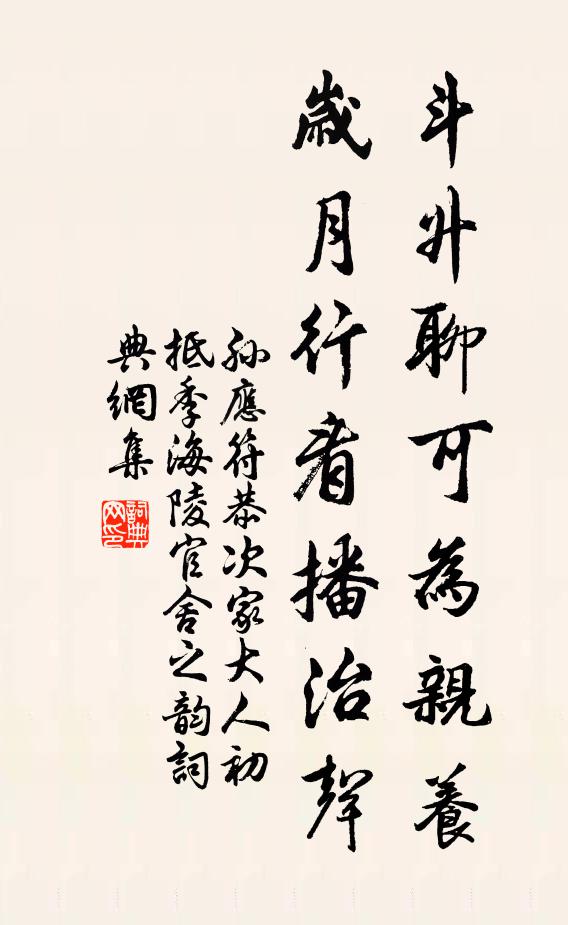 斗升聊可為親養
歲月行看播治聲
孙應符恭次家大人初
抵季海陵官舍之韵詞
典網集
詞典
网印